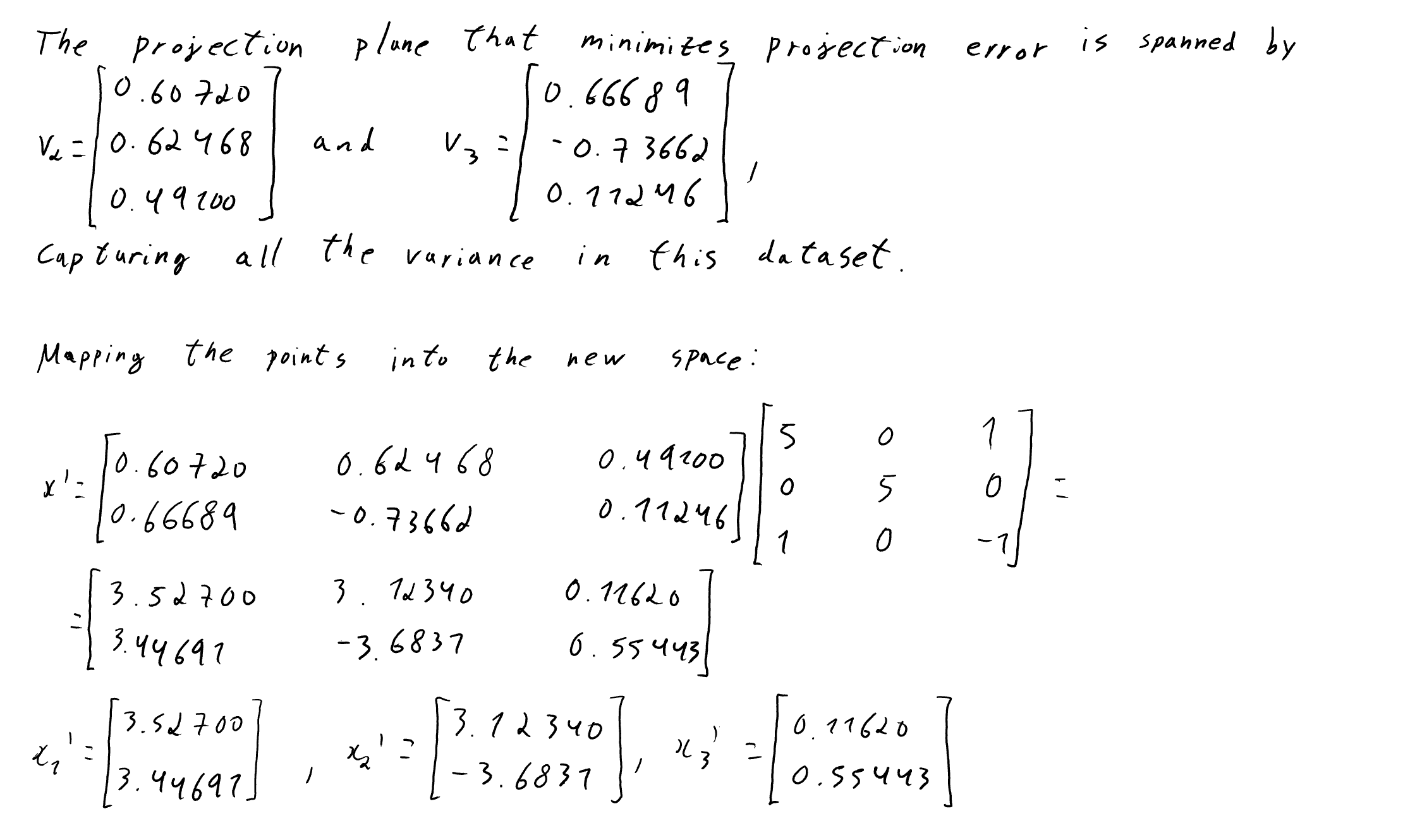 The projection plane that minimizes projection error is spanned by
V₂ = [0.60720 0.62468 0.49100] and V₃ = [0.66689 -0.73662 0.11246],
Capturing all the variance in this dataset.
Mapping the points into the new space:
x' = [0.60720 0.62468 0.49100; 0.66689 -0.73662 0.11246] [5 0 1; 0 5 0; 1 0 -1] =
= [3.52700 3.12340 0.11620; 3.44691 -3.6831 0.55443]
x₁' = [3.52700 3.44691], x₂' = [3.12340 -3.6831], x₃' = [0.11620 0.55443]